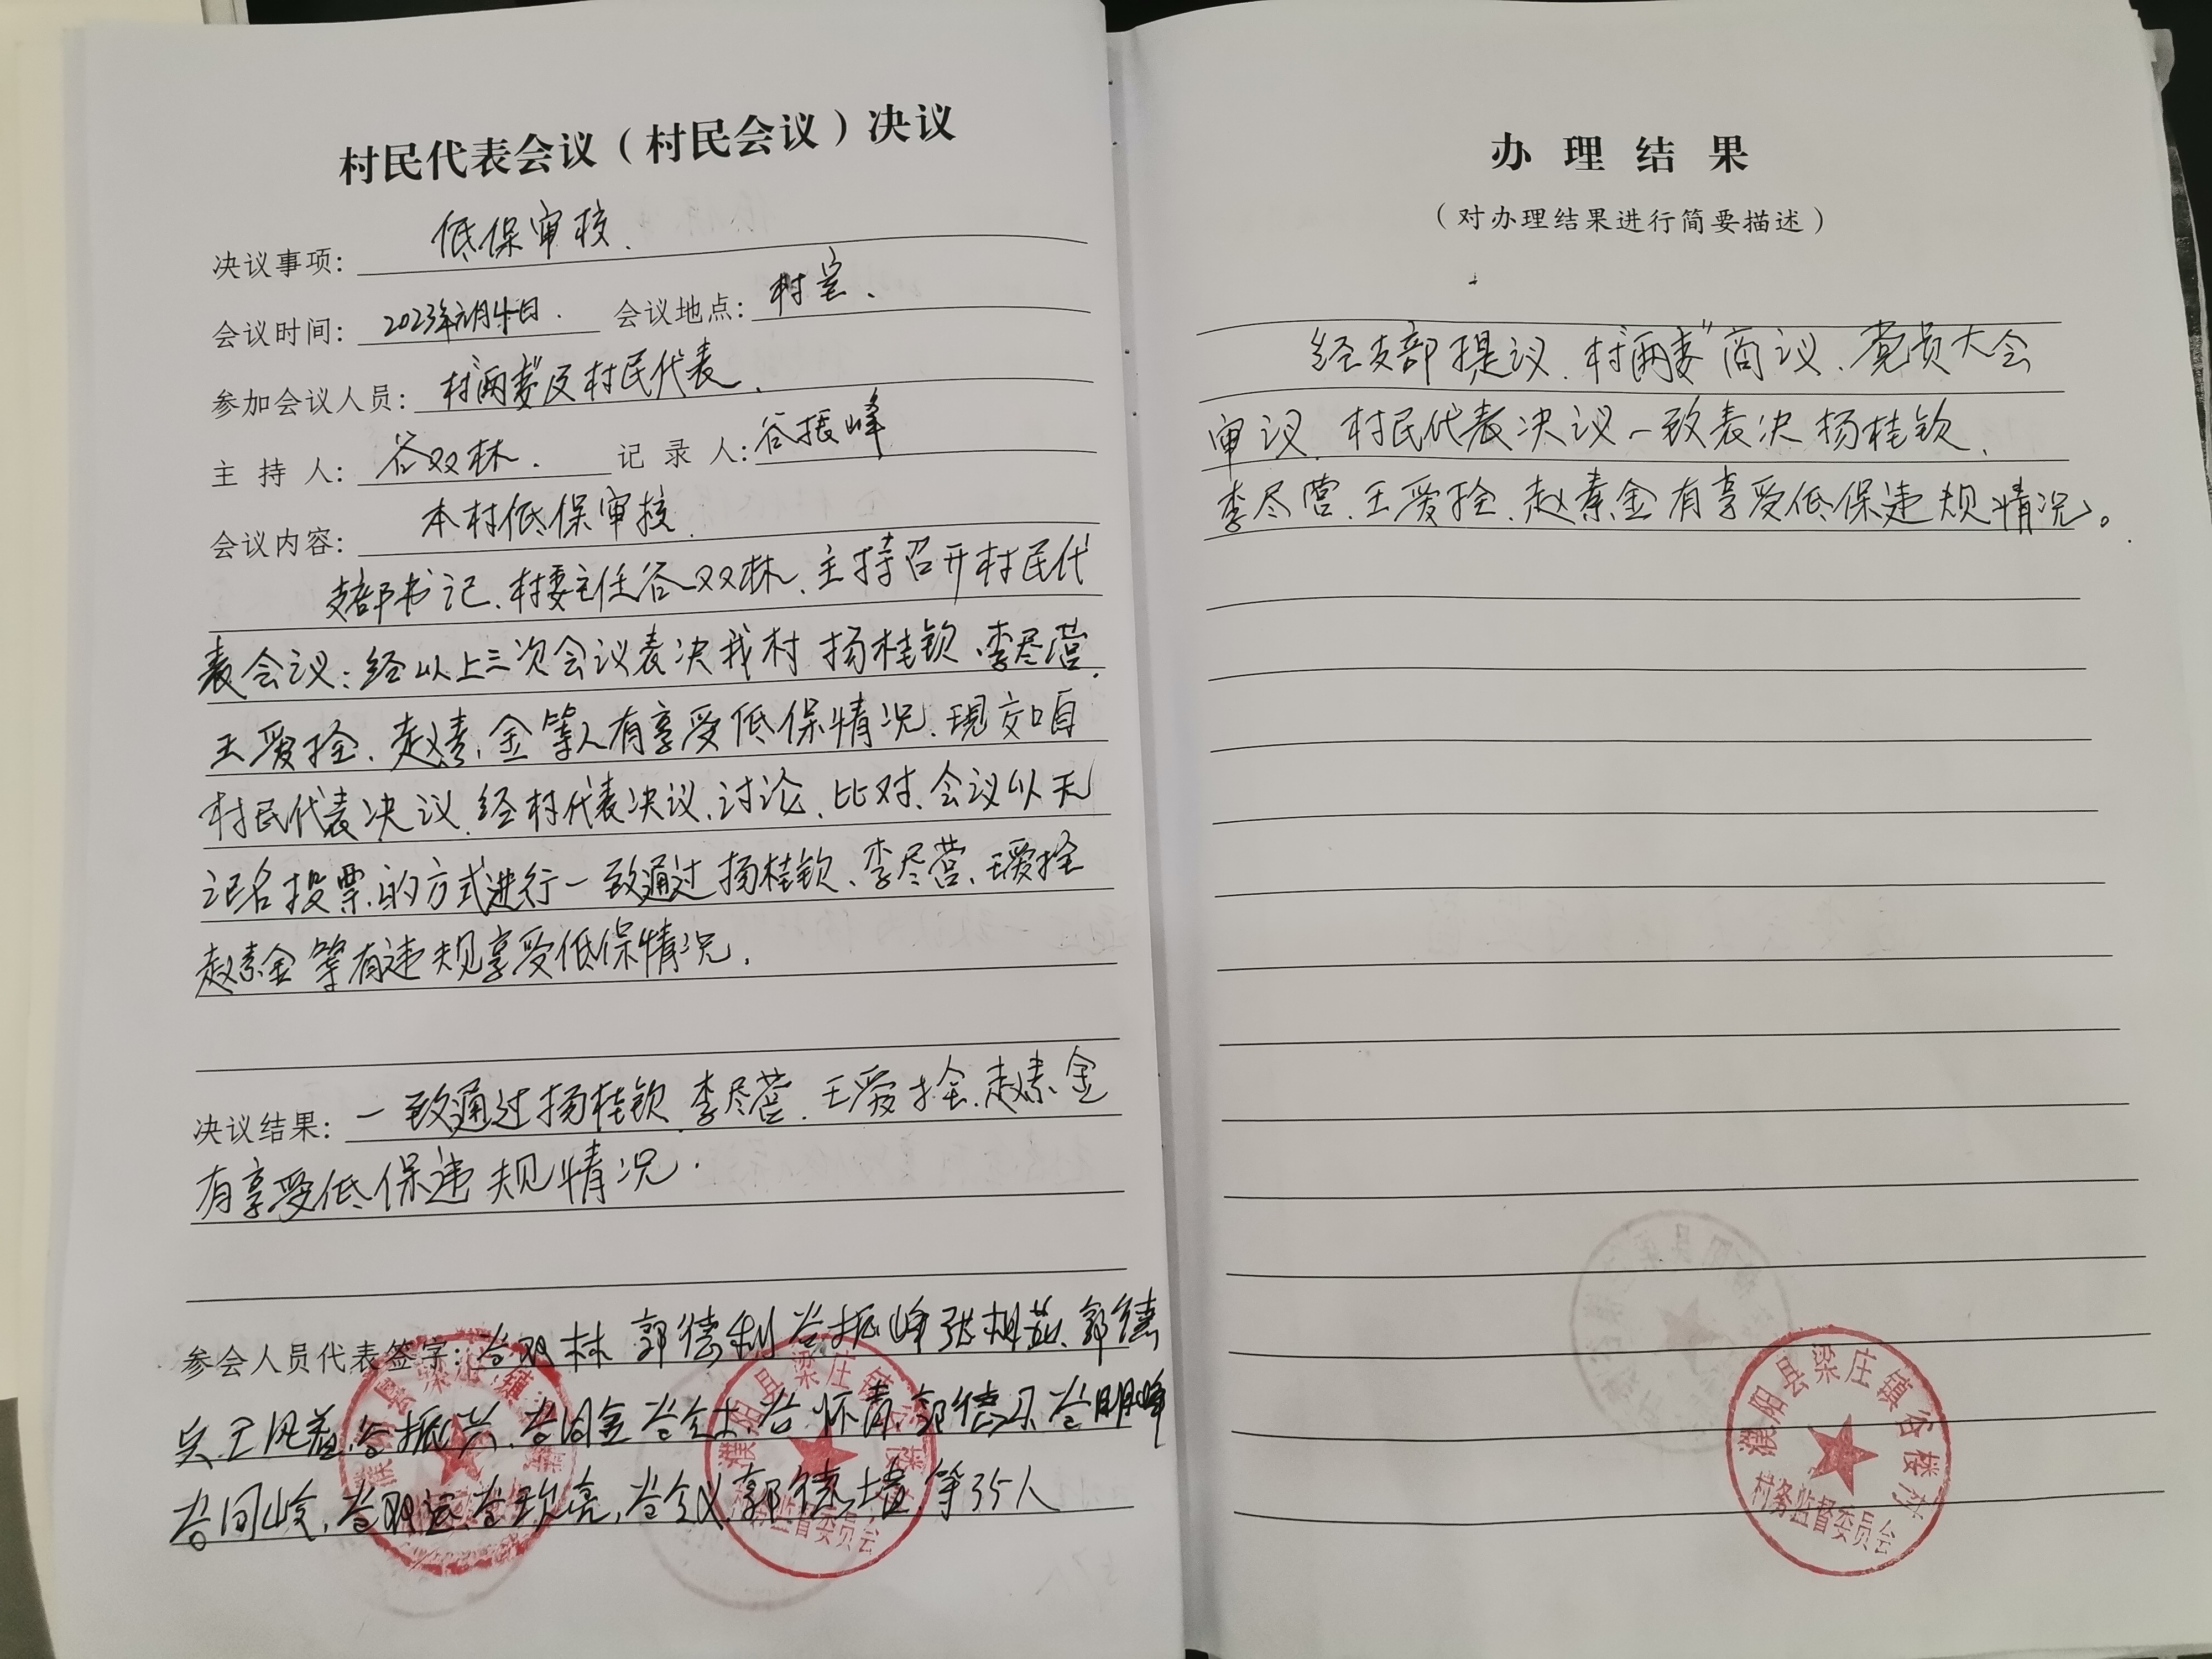 村民代表会议（村民会议）决议
决议事项：低保审核.
会议时间：2023年 会议地点：村室、
参加会议人员：村"两委"及村民代表.
主持人：谷双林. 记录人：谷振峰
会议内容：本村低保审核.
支部书记、村委主任谷双林、主持召开村民代
表会议：经以上三次会议表决我村 杨桂钦、李尽营、
王爱拴、赵素金等人有享受低保情况、现交咱
村民代表决议、经村代表决议、讨论、比对、会议以无
记名投票的方式进行一致通过杨桂钦、李尽营、王爱拴
赵素金等有违规享受低保情况.
决议结果：一致通过杨桂钦、李尽营、王爱拴、赵素金
有享受低保违规情况.
参会人员代表签字：谷双林 郭德利 谷振峰 郭德
谷振兴、谷同金 谷怀青 谷明峰
等35人
濮阳县梁庄镇
村务监督委员会
办理结果
（对办理结果进行简要描述）
经支部提议、村"两委"商议、党员大会
审议、村民代表决议一致表决 杨桂钦、
李尽营、王爱拴、赵素金有享受低保违规情况。
濮阳县梁庄镇谷楼村
村务监督委员会